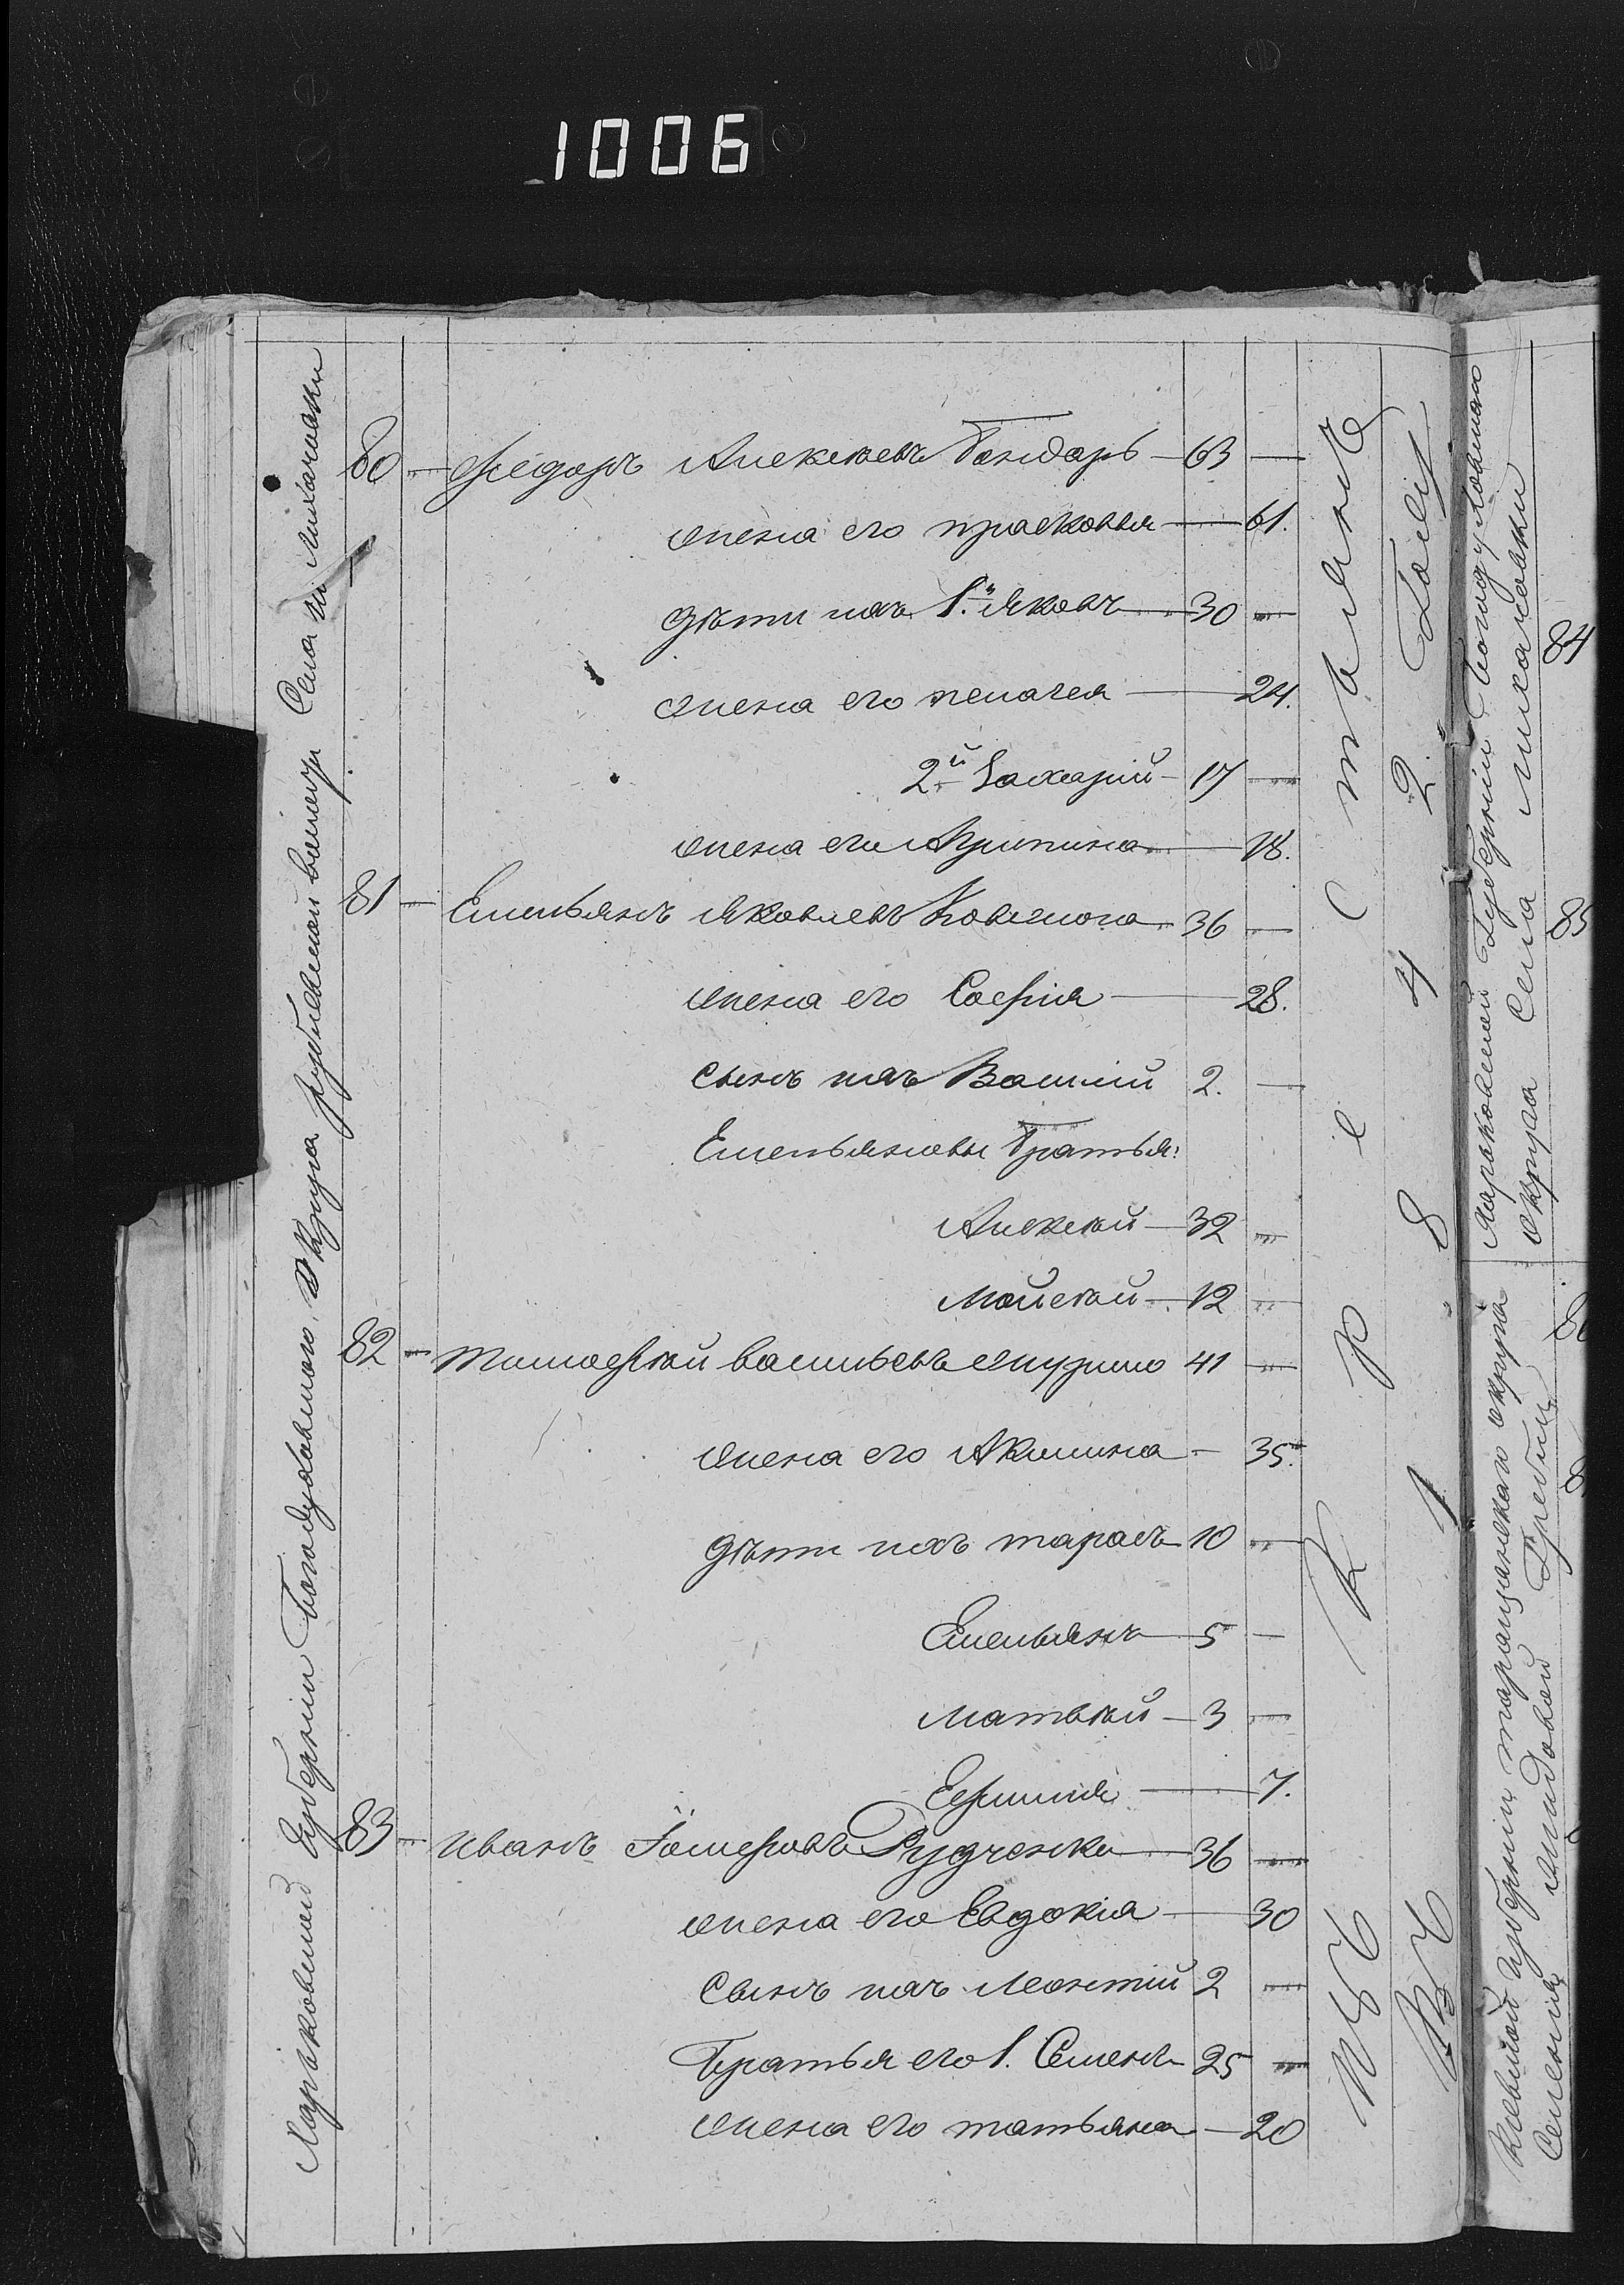 1006
Харьковской Губерніи Богодуховского Округа Рублевской волости Села Михайловки
80 — Федоръ Алексѣевъ Бондарь — 63 —
жена его прасковья — 61.
дѣти ихъ 1.й Яковъ — 30 —
жена его пелагея — 24.
2.й Захарій — 17 —
жена его Агрипина — 18.
81 — Емельянъ Яковлевъ 36 —
жена его Софія — 28.
сынъ ихъ Василій 2. —
Емельяновы братья:
Алексѣй — 32 —
Мойсѣй — 12 —
82 — Тимофѣй васильевъ 41 —
жена его Акилина — 35.
дѣти ихъ тарасъ 10 —
Емельянъ — 5 —
Матвѣй — 3 —
Ефимія — 7.
83 — иванъ Рудченко — 36 —
жена его Евдокія — 30
сынъ ихъ Леонтій 2 —
братья его 1. Семенъ — 25 —
жена его татьяна — 20
изъ Крестьянъ
Въ 1842 Году
Харьковской Губерніи Богодуховского
округа Села Михайловки
84
85
Кіевской губерніи таращанскаго округа
Селенія Гребли